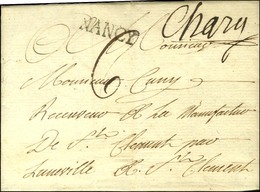 NANCY
Chary
6 Monsieur
Monsieur Cuny
Receveur de la Manufacture
De St Clement par
Luneville A St Clement